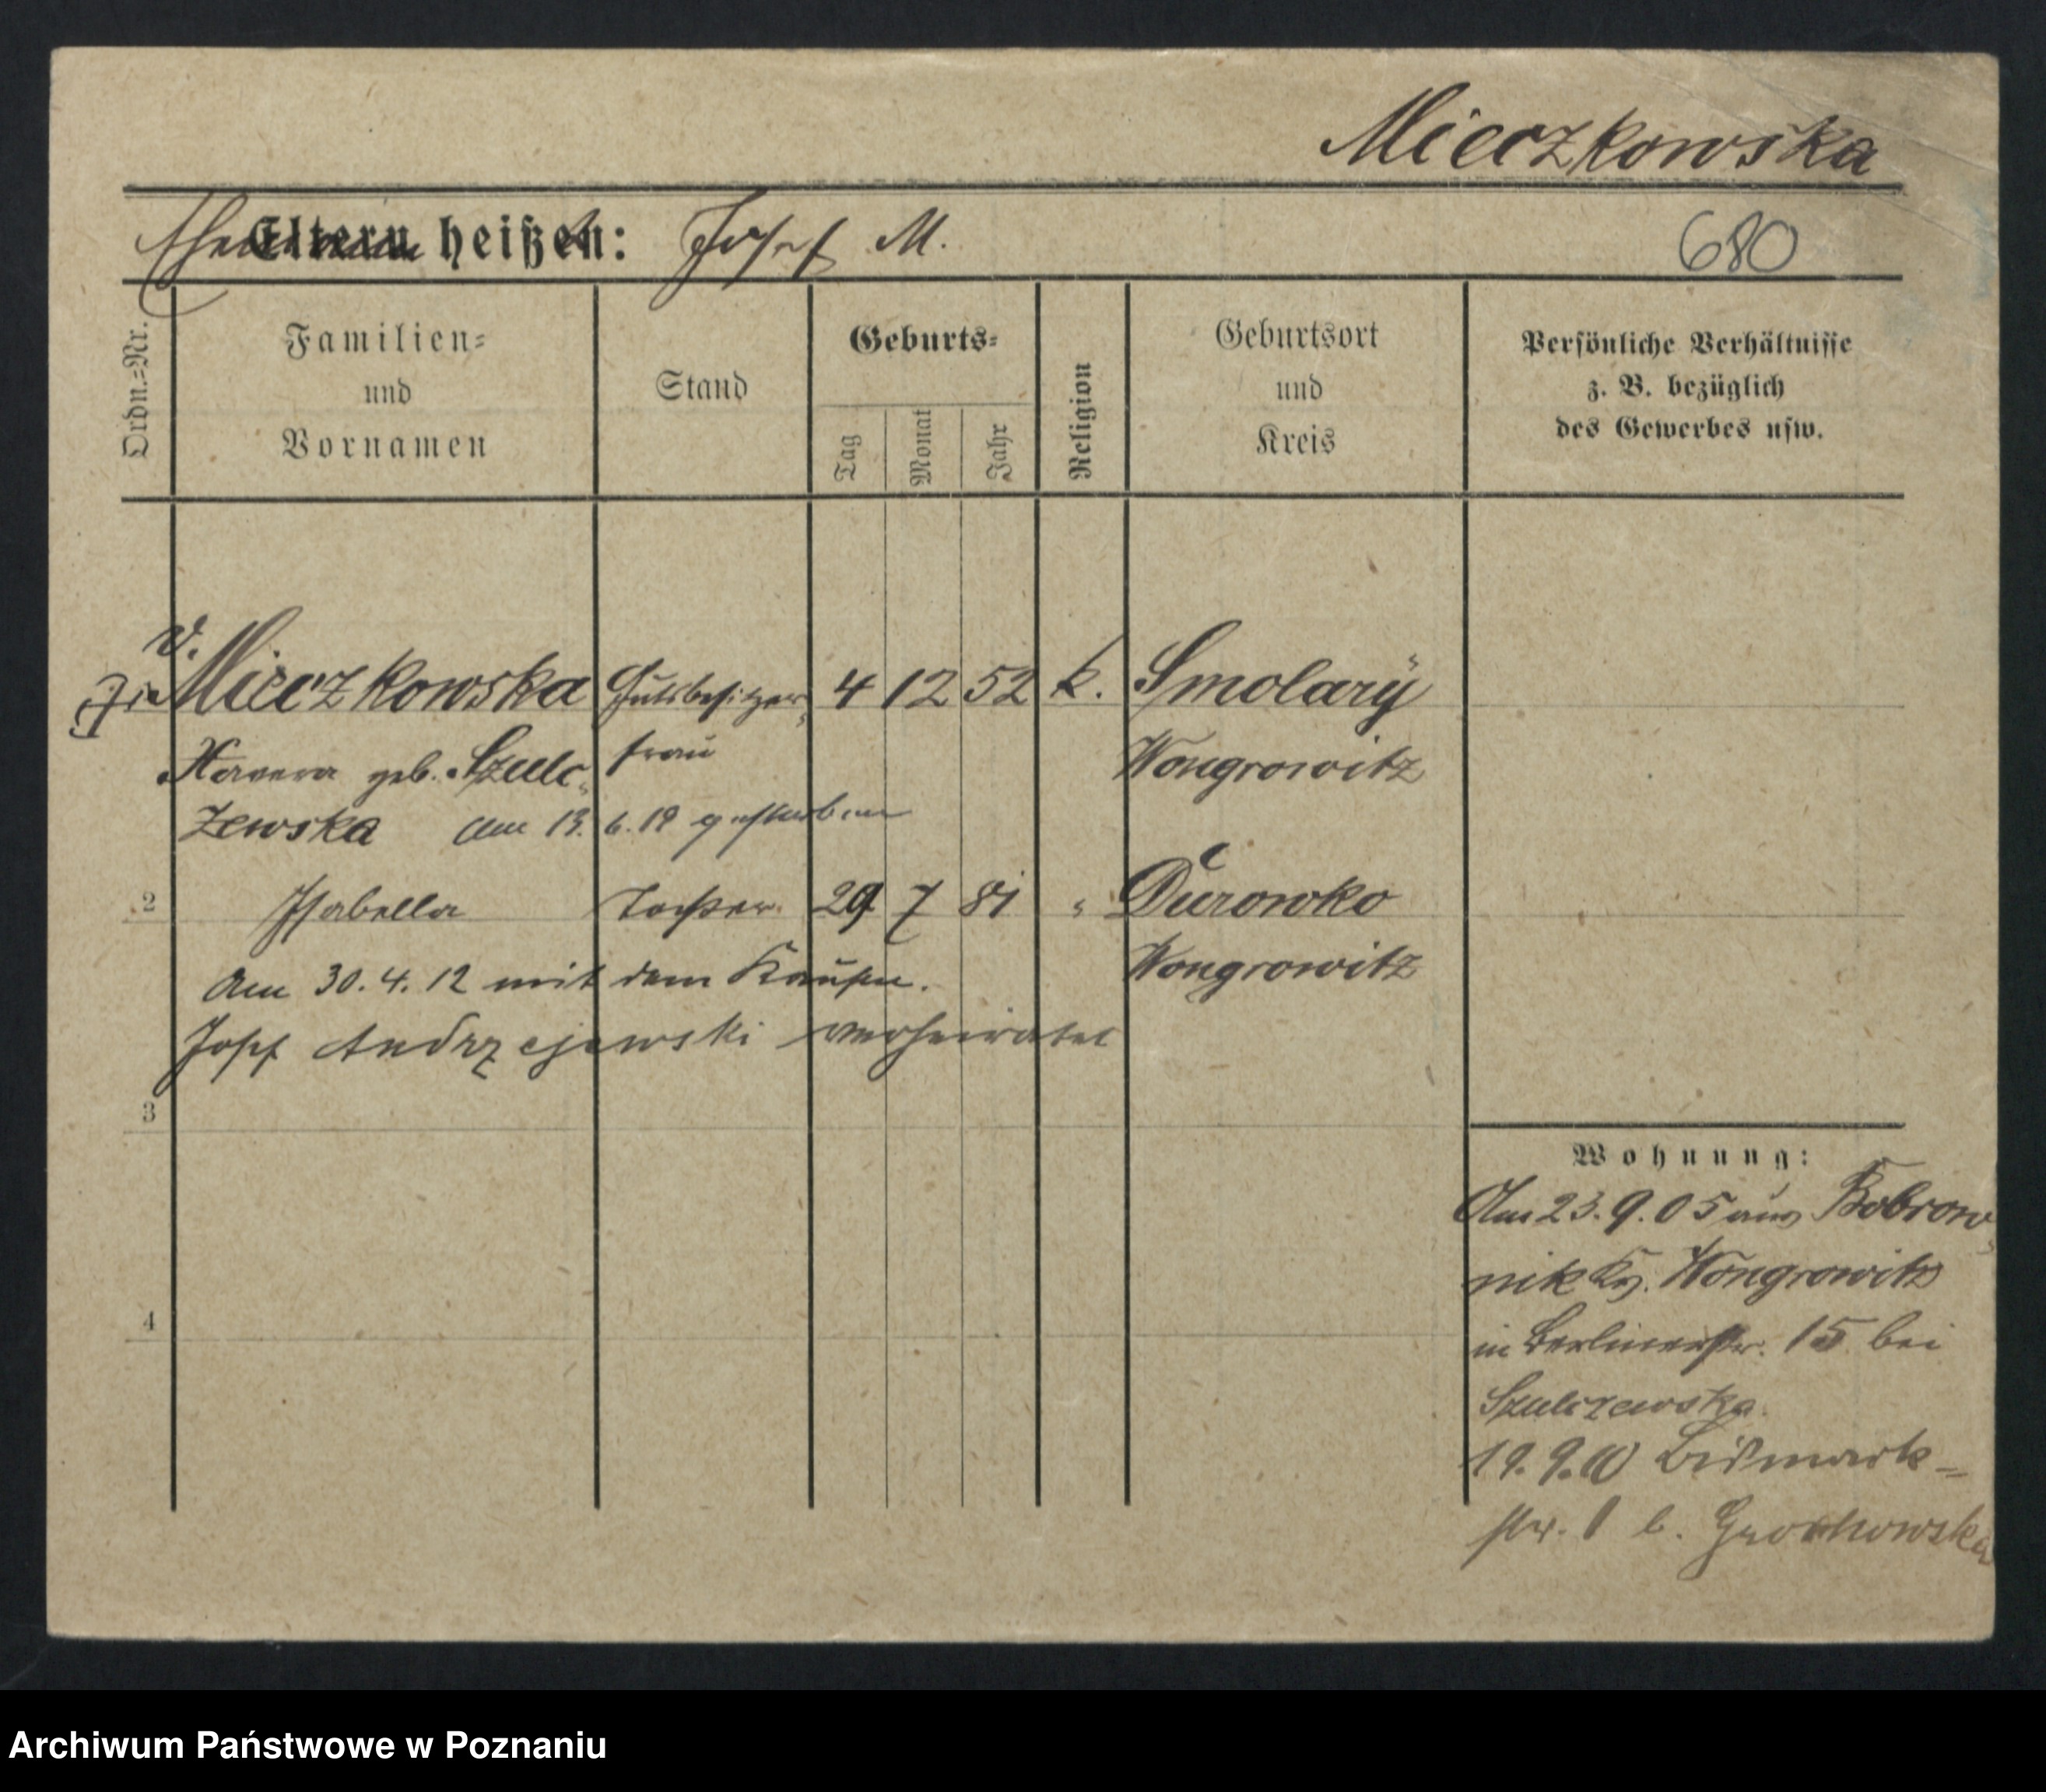 Mieczkowska
Ehemann Eltern heißen: Josef M.
680
Ordn.-Nr.
Familien-
und
Vornamen
Stand
Geburts-
Tag
Monat
Jahr
Religion
Geburtsort
und
Kreis
Persönliche Verhältnisse
z. B. bezüglich
des Gewerbes usw.
v.
Mieczkowska Gutsbesitzer- 4 12 52 k. Smolary
Xavera geb. Szulc- frau Wongrowitz
zewska Am 13. 6. 19 gestorben
2 Isabella Tochter 29 7 81 " Durowko
Am 30. 4. 12 mit dem Kaufm. Wongrowitz
Josef Andrzejewski verheiratet
3
4
Wohnung:
Am 23. 9. 05 aus Bobrow-
nik Kr. Wongrowitz
in Berlinerstr. 15 bei
Szulczewska.
19. 9. 10 Bismark-
str. 1 b. Grochowska
Archiwum Państwowe w Poznaniu